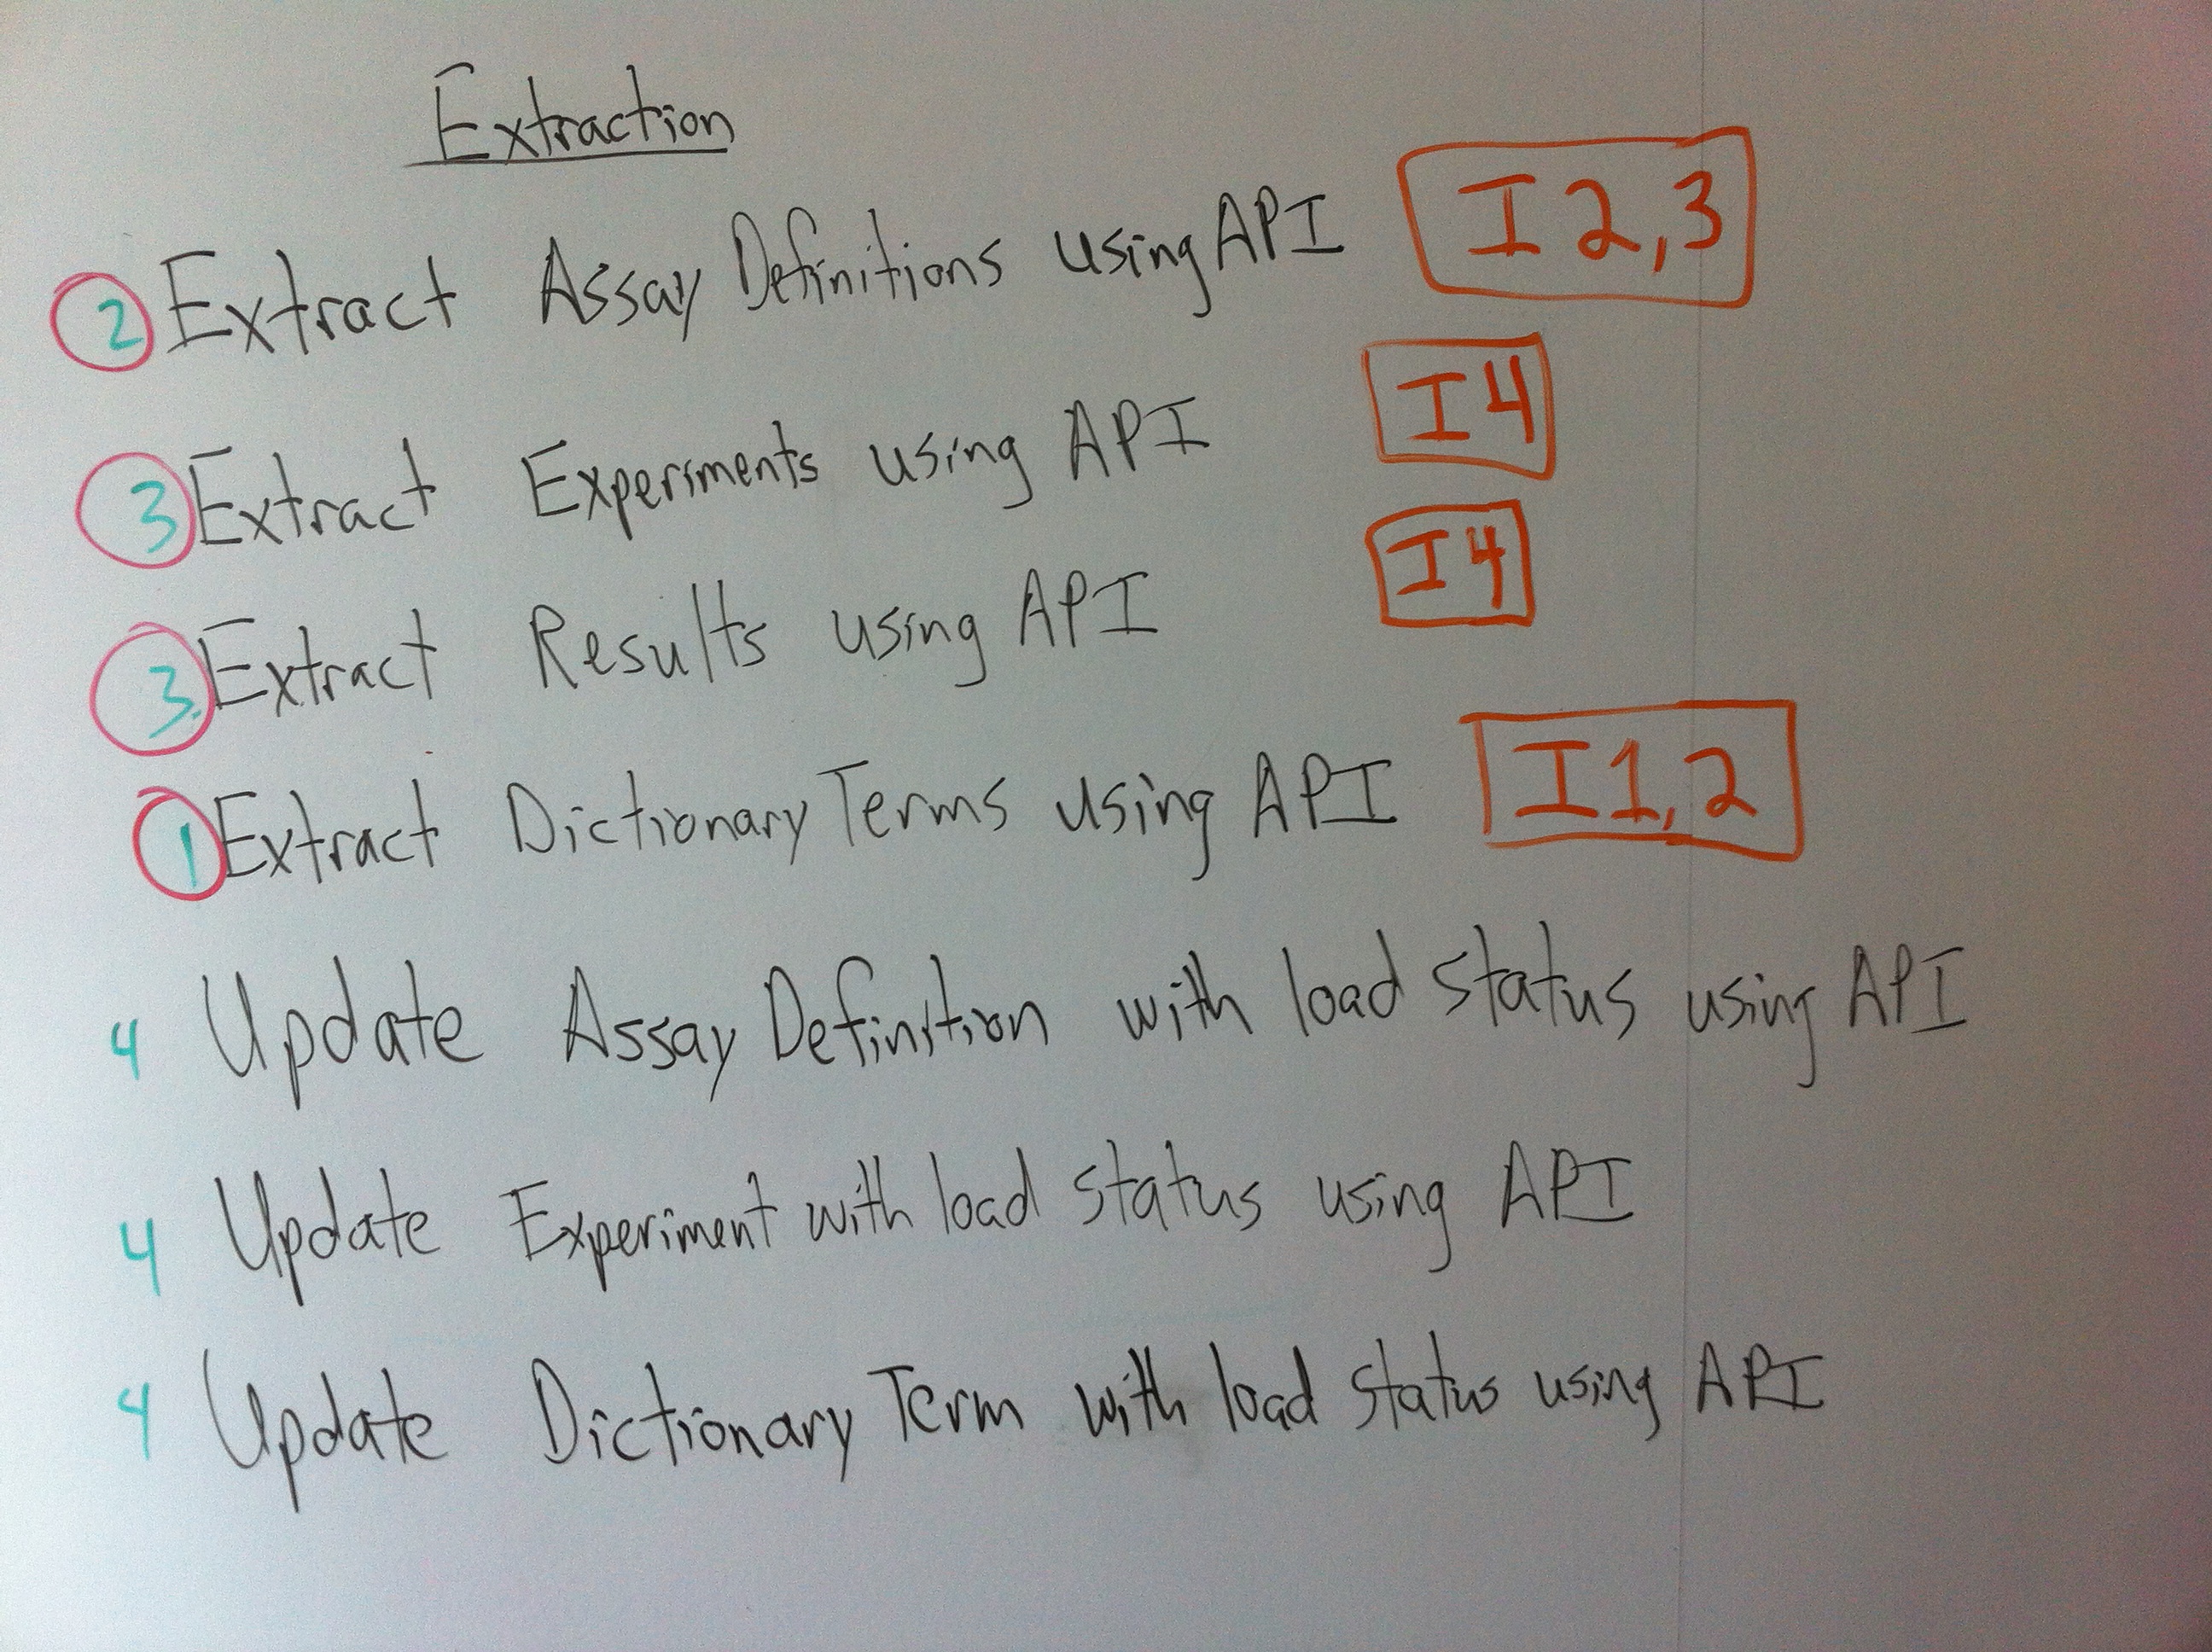 Extraction
2 Extract Assay Definitions using API I 2,3
3 Extract Experiments using API I 4
3 Extract Results using API I 4
1 Extract Dictionary Terms using API I 1,2
4 Update Assay Definition with load status using API
4 Update Experiment with load status using API
4 Update Dictionary Term with load status using API